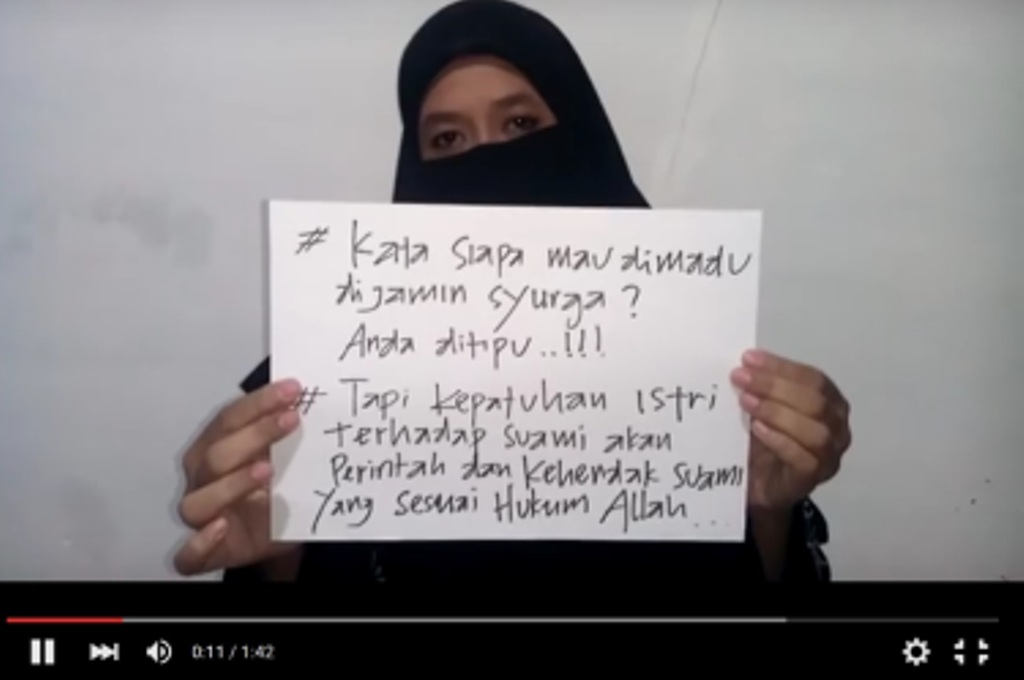 # Kata siapa mau dimadu
dijamin syurga?
Anda ditipu..!!!
# Tapi kepatuhan istri
terhadap suami akan
perintah dan kehendak suami
yang sesuai Hukum Allah...
0:11 / 1:42